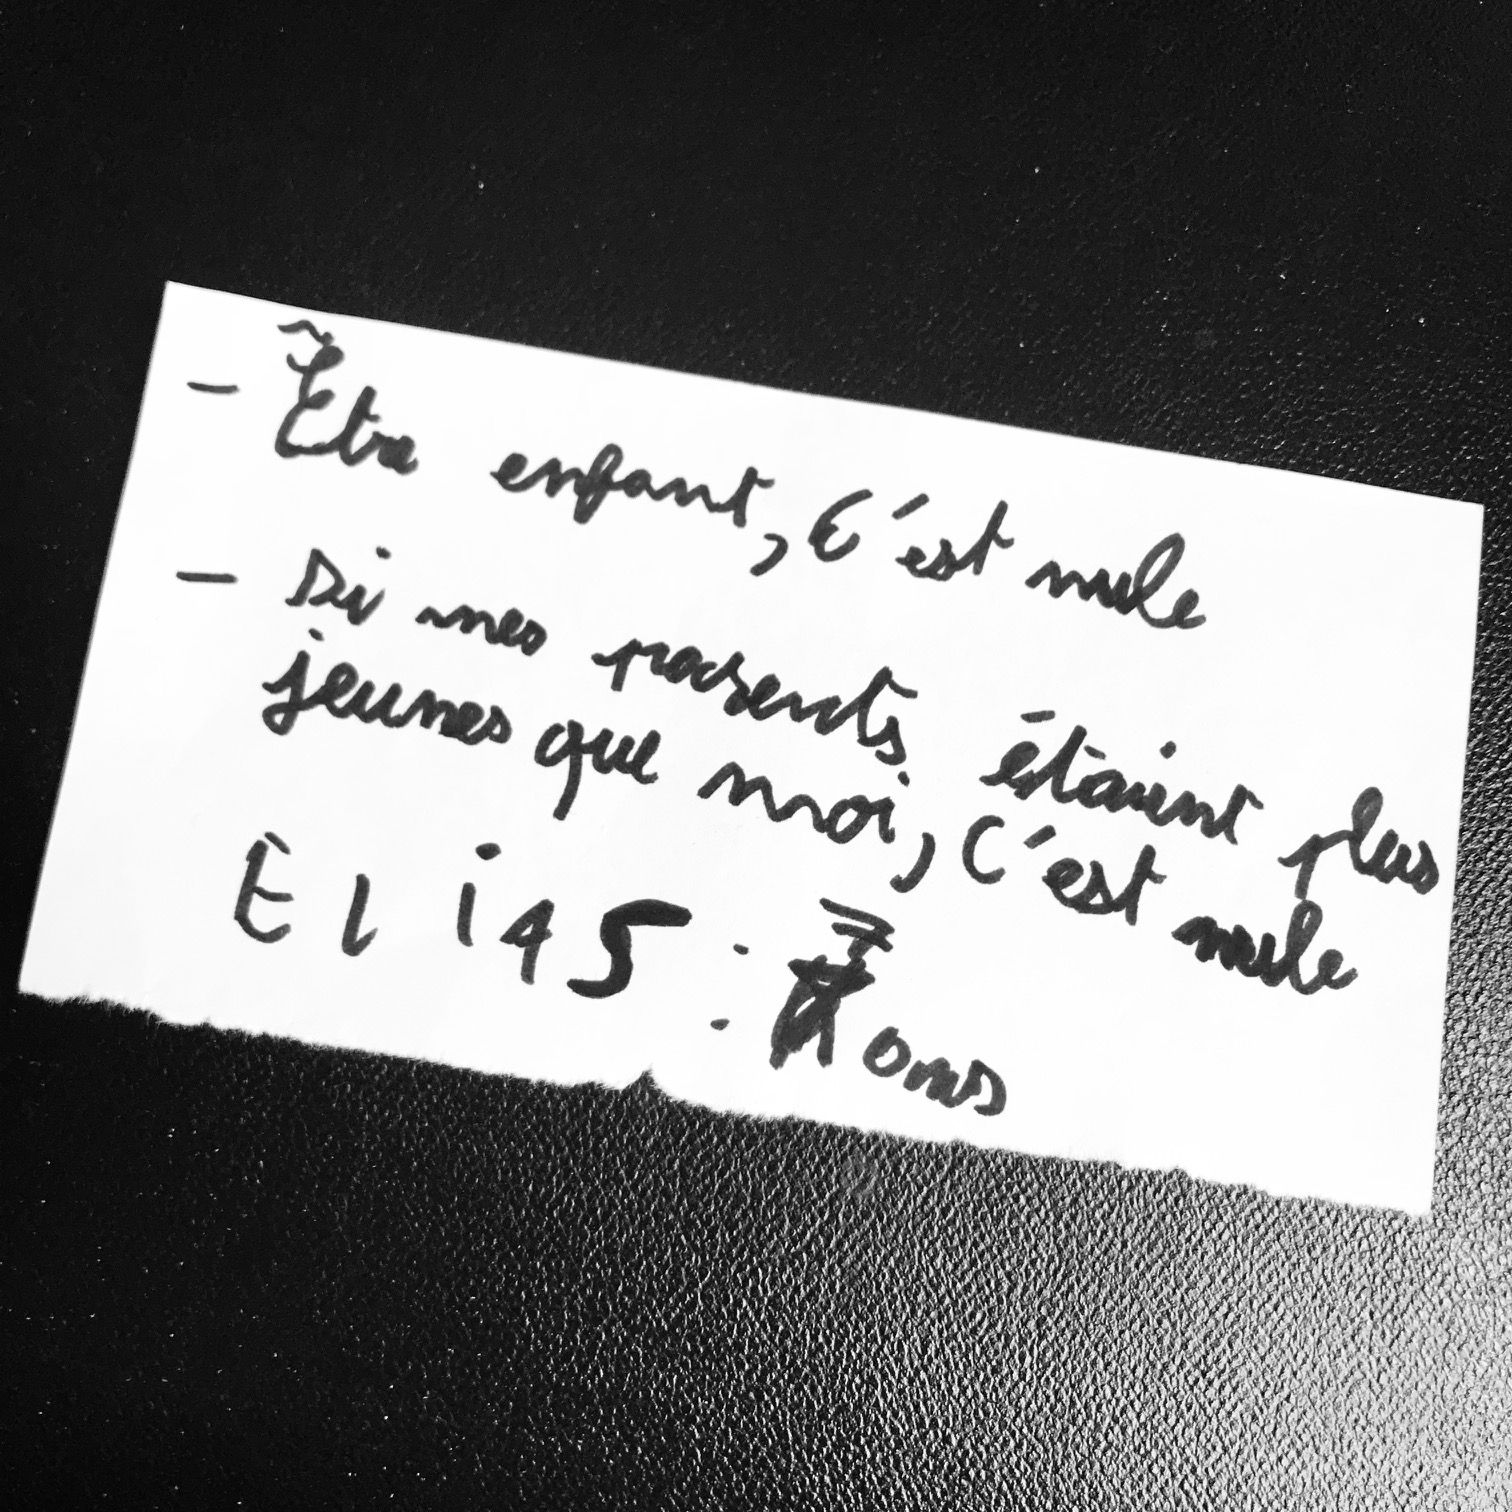 - Être enfant, c'est nule
- Si mes parents étaient plus
jeunes que moi, c'est nule
Elias : ans